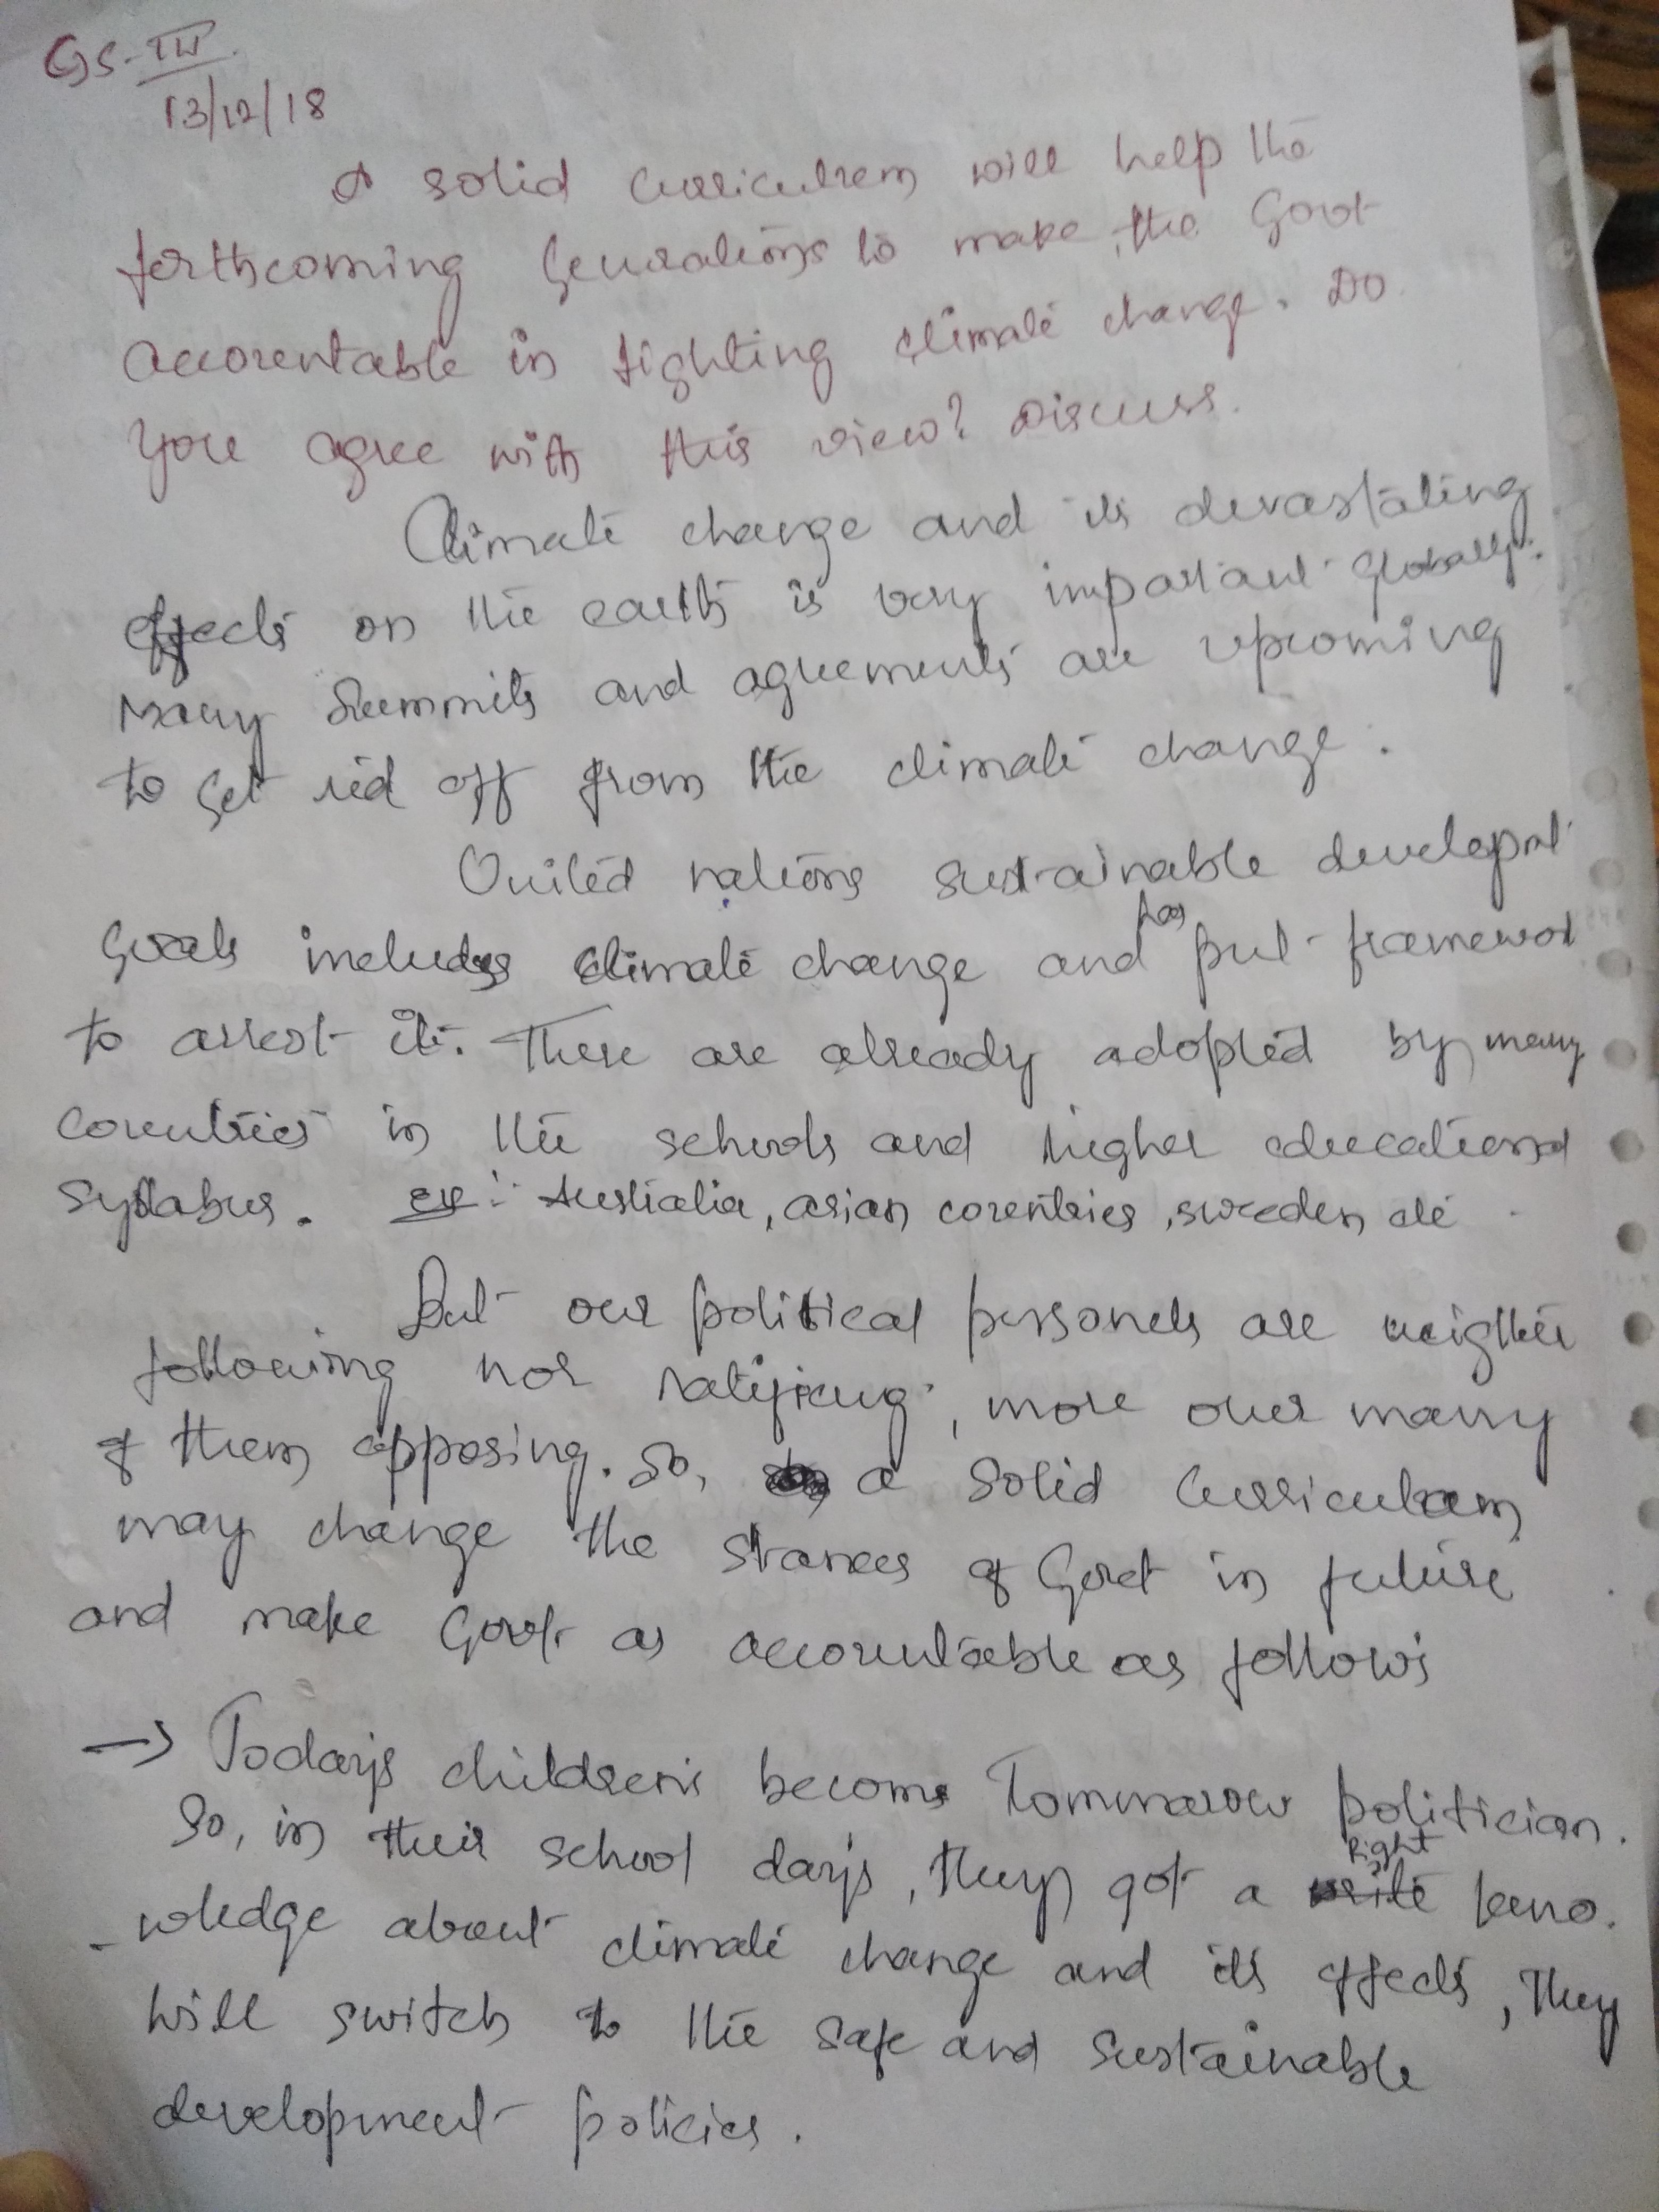 GS-III
13/12/18
A solid curriculum will help the
forthcoming Generations to make the Govt
accountable in fighting climate change. Do
you agree with this view? Discuss.
Climate change and its devastating
effects on the earth is very important globally.
Many Summits and agreements are upcoming
to get rid off from the climate change.
United nations sustainable developmt
Goals includes climate change and has put framewor
to arrest it. These are already adopted by many
countries in the schools and higher educational
syllabus. ex: Australia, asian countries, sweeden etc
But our political personels are neigther
following nor ratifieng, more over many
of them opposing. So, a solid curriculam
may change the stances of Govt in future
and make Govt as accountable as follows
→ Today's children's become Tommarow politician.
So, in their school days, they got a right kno-
-wledge about climate change and its effects, they
will switch to the safe and sustainable
development policies.